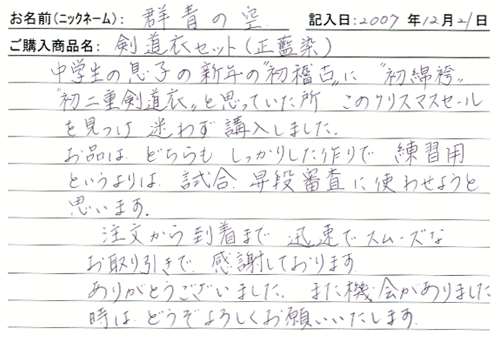 お名前(ニックネーム): 群青の空 記入日:2007年12月21日
ご購入商品名: 剣道衣セット(正藍染)
中学生の息子の新年の"初稽古"に "初綿袴"
"初二重剣道衣"と思っていた所 このクリスマスセール
を見つけ 迷わず 講入しました.
お品は どちらも しっかりした作りで 練習用
というよりは 試合. 昇段審査に使わせようと
思います.
注文から到着まで 迅速でスムーズな
お取り引きで. 感謝しております.
ありがとうございました. また機会がありました
時は どうぞよろしくお願いいたします.